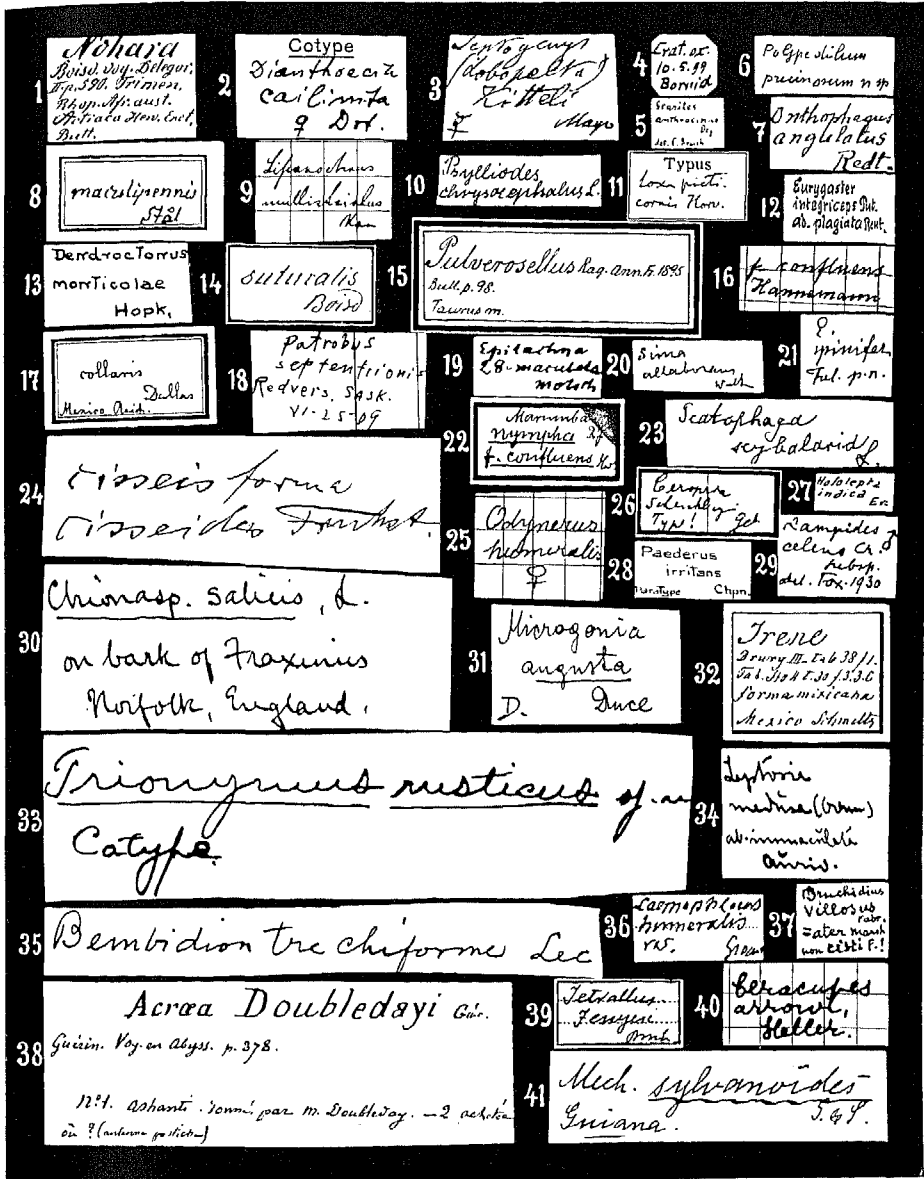 1
Nohara
Boisd. Voy. Delegor.
II p. 590. Trimen,
Rhop. Afr. aust.
Actiaca Hew. Exot.
Butt.
2
Cotype
Dianthoecia
cailimita
♀ Dor.
3
Leptogenys
(Lobopelta)
Kitteli
☿ Mayr
4
Erat. ex.
10.5.99
Bornéid
5
anthracinus
6
Polypedilum
pruinorum n sp
7
Onthophagus
angulatus
Redt.
8
maculipennis
Stål
9
10
Psylliodes
chrysocephalus L.
11
Typus
Loxa picti-
cornis Horv.
12
Eurygaster
integriceps Put.
ab. plagiata Reut.
13
Dendroctonus
monticolae
Hopk.
14
suturalis
Boisd
15
Pulverosellus Rag. Ann. Fr. 1895
Bull. p. 98.
Taurus m.
16
f. confluens
Hannemann
17
collaris
Dallas
Mexico
18
Patrobus
septentrionis
Redvers, Sask.
VI-25-09
19
Epilachna
28-maculata
motsch
20
Sima
allaborans
Walk
21
P.
spinifer
Ful. p.n.
22
Marumba
nympha R.J
f. confluens
23
Scatophaga
scybalaria L.
24
cisseis forma
cisseides Fruhst.
25
Odynerus
humeralis
♀
26
Ceropria
Typ! Geb
27
Hololepta
indica Er.
28
Paederus
irritans
Paratype Chpn.
29
Lampides ♂
celeno Cr.
subsp.
det. Fox. 1930
30
Chionasp. salicis, L.
on bark of Fraxinus
Norfolk, England.
31
Microgonia
angusta
D. Druce
32
Irene
Drury III. Tab 38 f 1.
forma mexicana
Mexico Schmeltz
33
Trionymus rusticus sp.
Cotype.
34
Leptoria
medusa (Brem)
ab. immaculata
Auriv.
35
Bembidion trechiforme Lec
36
Laemophloeus
humeralis
var. Grouv
37
Bruchidius
villosus Fabr.
= ater Marsh
non cisti F.!
38
Acræa Doubledayi Guér.
Guérin. Voy. en Abyss. p. 378.
No. 1. ashanti donné par m. Doubleday. — 2 acheté
où ? (antenne postiche)
39
Tetrallus
Fennyesi
Brnh.
40
Ceracupes
arrowi,
Heller.
41
Mech. sylvanoides
Guiana. G & S.